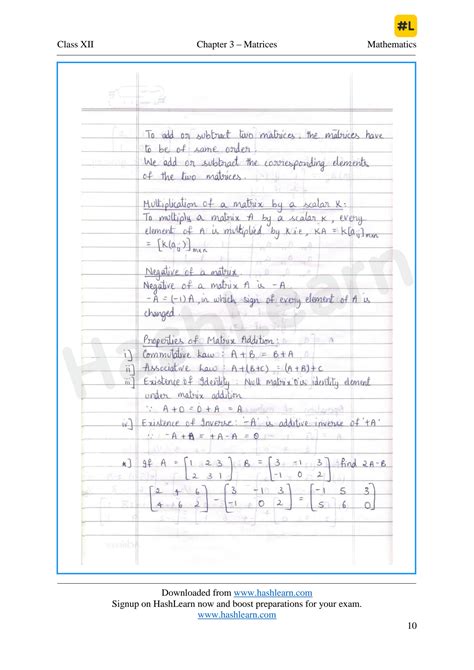 #L
Class XII Chapter 3 – Matrices Mathematics
To add or subtract two matrices, the matrices have
to be of same order.
We add or subtract the corresponding elements
of the two matrices.
Multiplication of a matrix by a scalar K:
To multiply a matrix A by a scalar K, every
element of A is multiplied by K i.e, KA = K(aij)mxn
= [K(aij)]mxn
Negative of a matrix
Negative of a matrix A is -A
-A = (-1)A, in which sign of every element of A is
changed.
Properties of Matrix Addition:
i] Commutative Law : A+B = B+A
ii] Associative Law : A+(B+C) = (A+B)+C
iii] Existence of Identity : Null matrix O is identity element
under matrix addition
∵ A+O = O+A = A
iv] Existence of Inverse: '-A' is additive inverse of '+A'
∵ -A+A = +A-A = O
*] If A = [1 2 3 B = [3 -1 3 find 2A-B
2 3 1] -1 0 2]
[2 4 6 - [3 -1 3 = [-1 5 3
4 6 2] -1 0 2] 5 6 0]
HashLearn
Downloaded from www.hashlearn.com
Signup on HashLearn now and boost preparations for your exam.
www.hashlearn.com
10